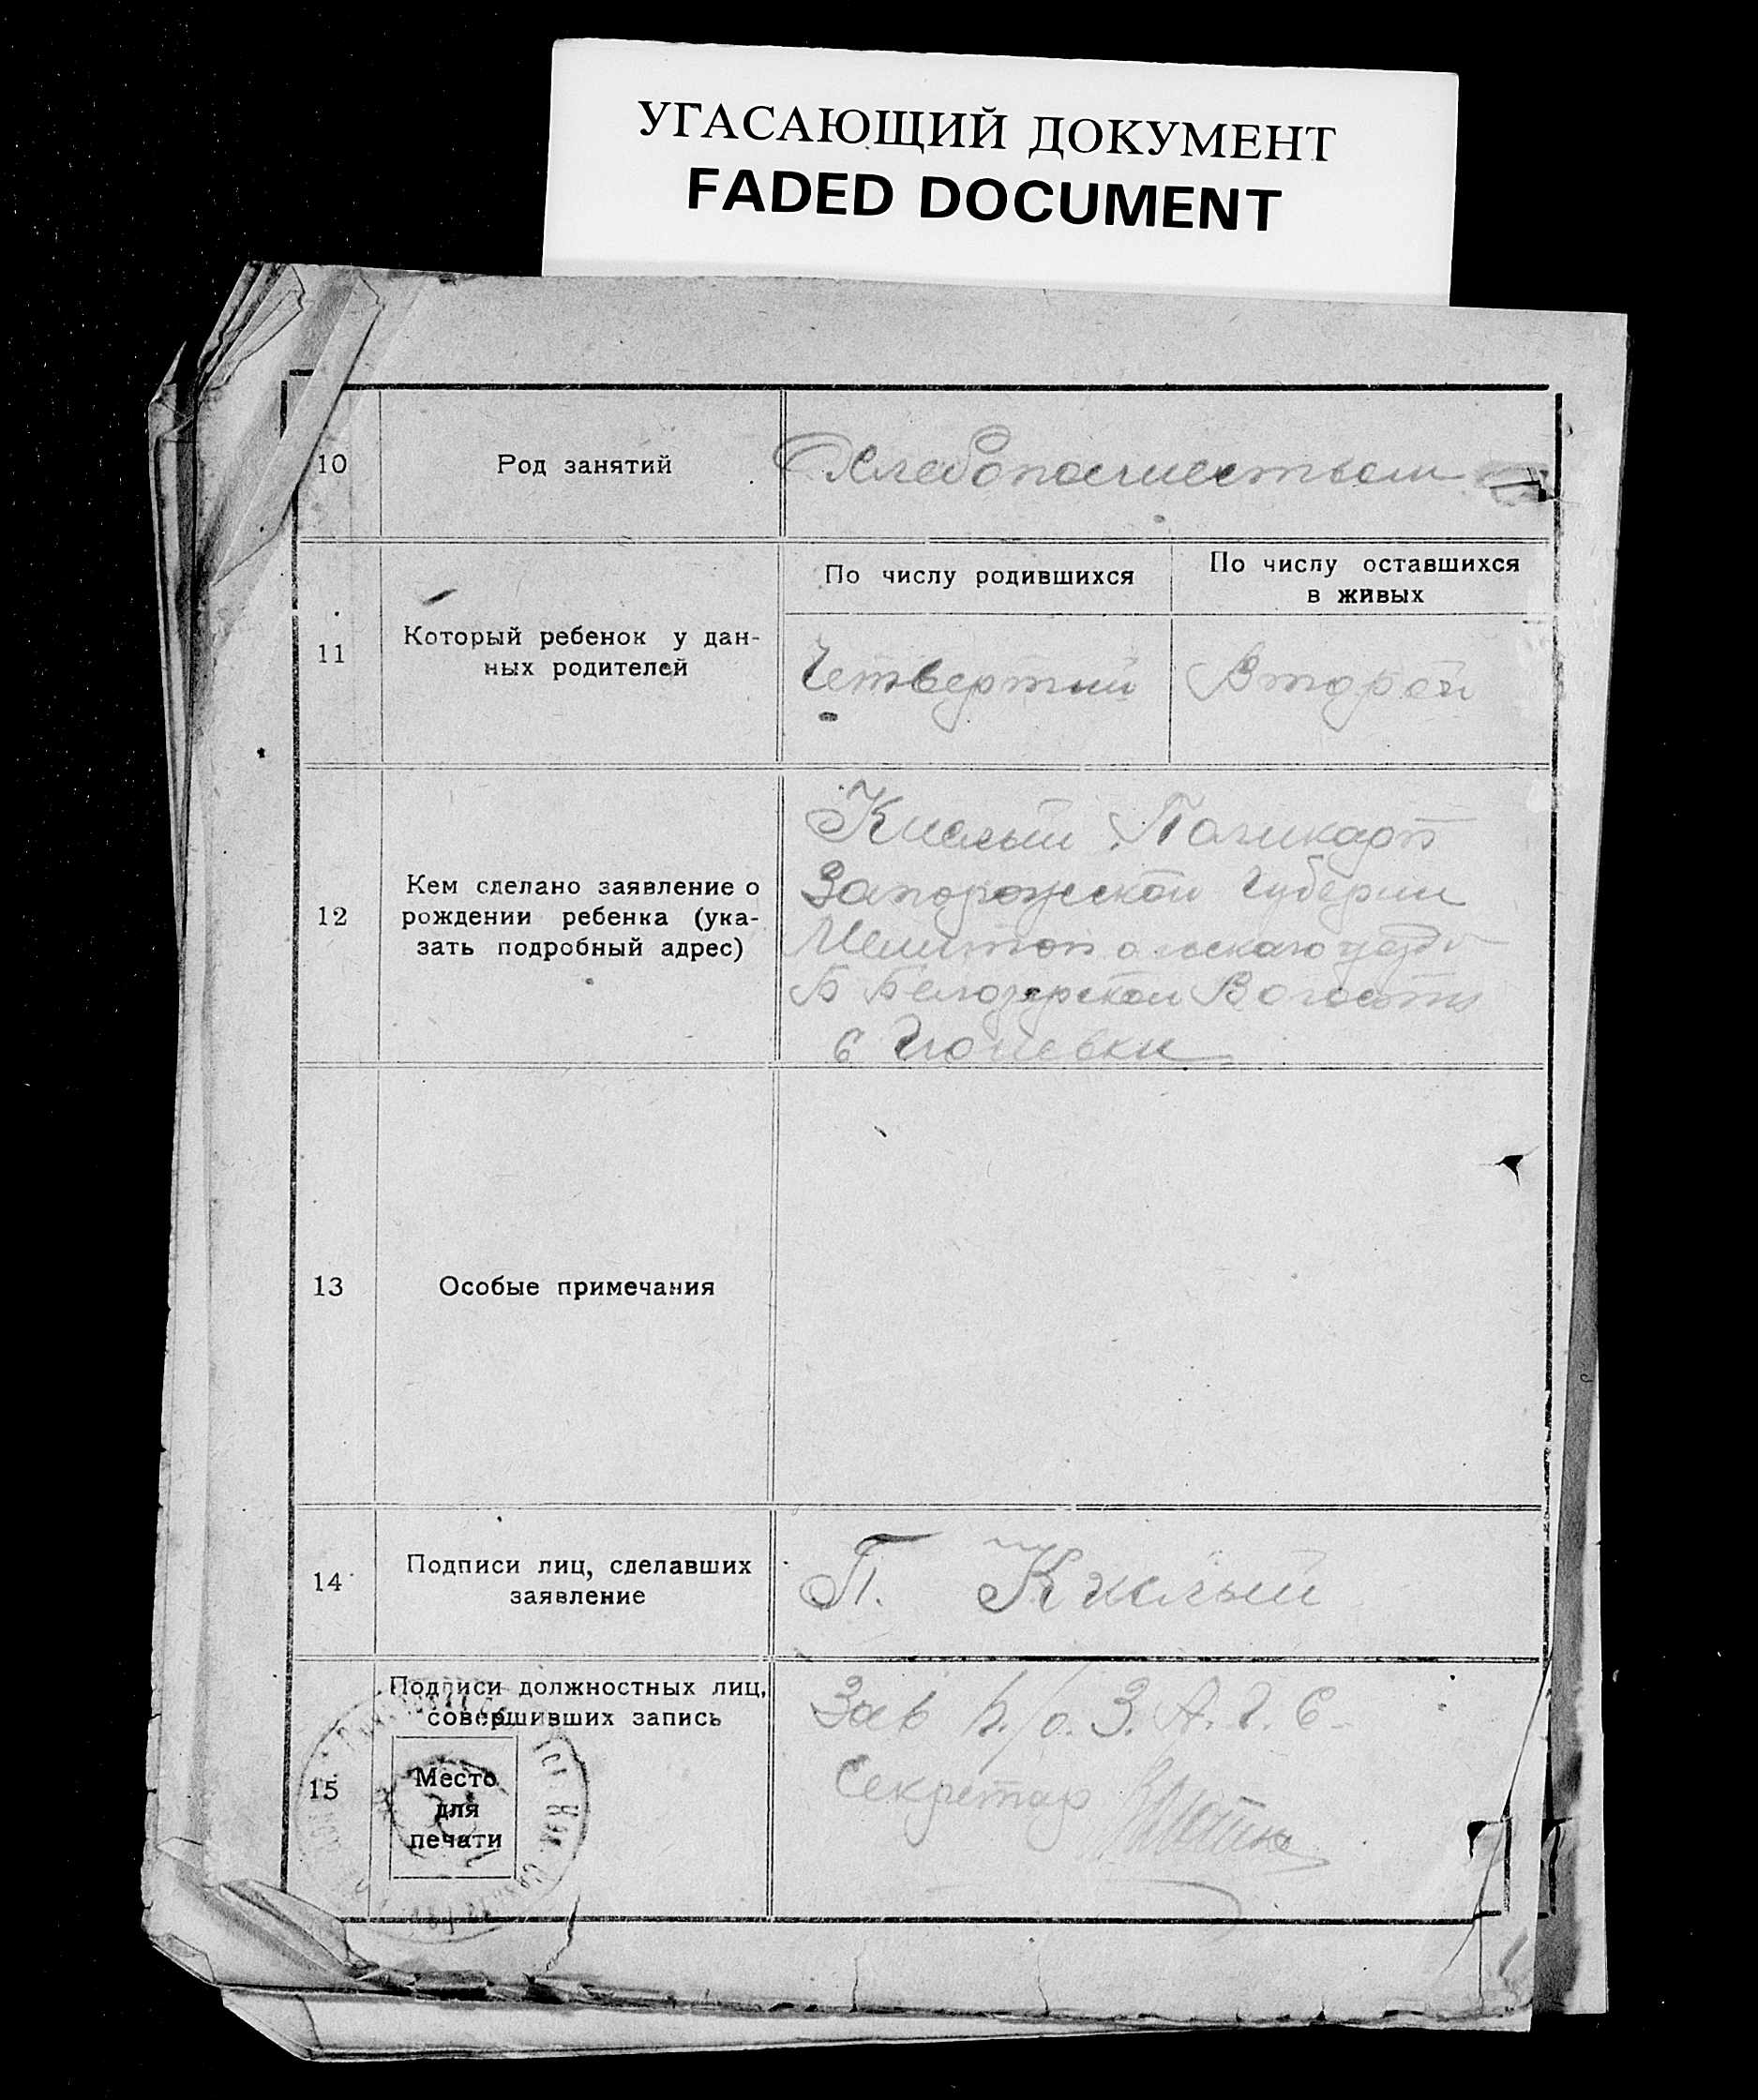 УГАСАЮЩИЙ ДОКУМЕНТ
FADED DOCUMENT
10
Род занятий
Хлебопашеством
11
Который ребенок у дан-
ных родителей
По числу родившихся
Четвертий
По числу оставшихся
в живых
Второй
12
Кем сделано заявление о
рождении ребенка (ука-
зать подробный адрес)
Кислый Поликарп
Запорожской Губернии
Мелитопольскаго уезда
Б Белозерской Волости
с
13
Особые примечания
14
Подписи лиц, сделавших
заявление
П. Кислый
15
Подписи должностных лиц,
совершивших запись
Место
для
печати
Зав п/о. З. А. Г. С.
Секретар